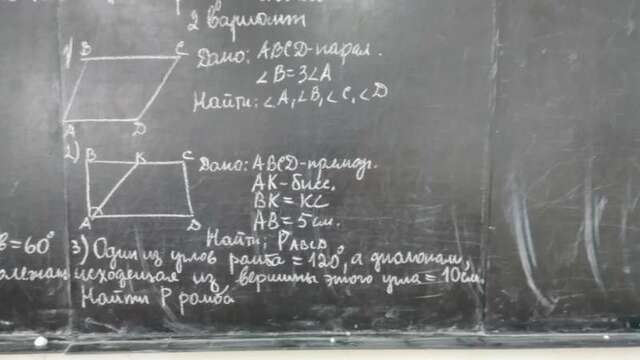 2 вариант
1)
B C
A D
Дано: ABCD-парал.
∠B=3∠A
Найти: ∠A, ∠B, ∠C, ∠D
2)
B K C
A D
Дано: ABCD-прямоуг.
AK-бисс.
BK=KC
AB=5см.
Найти: P ABCD
=60°
3) Один из углов ромба =120°, а диагональ,
исходящая из вершины этого угла =10см.
Найти P ромба